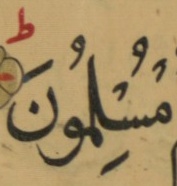 ط
مُسْلِمُونَ